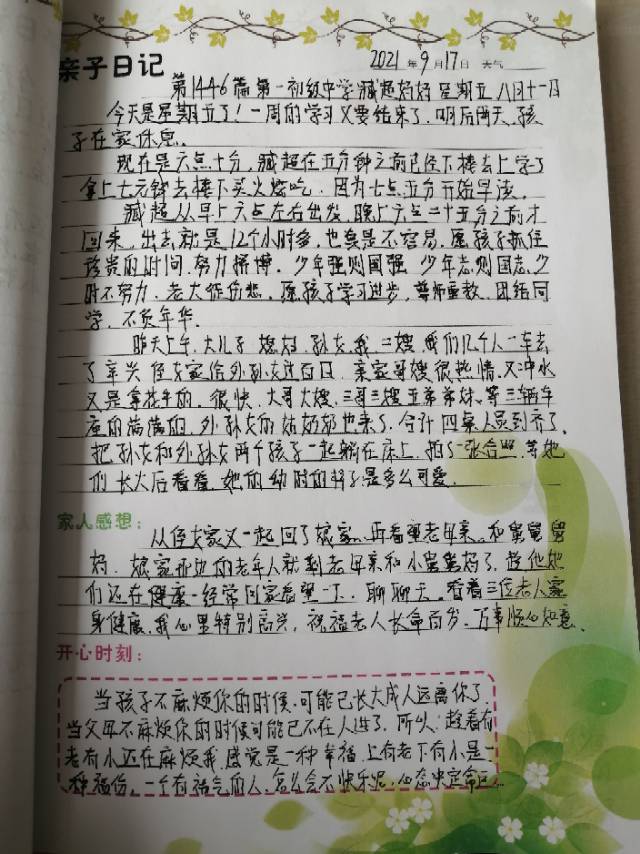 亲子日记
2021年9月17日 天气
第1446篇 第一初级中学臧超妈妈 星期五 八月十一日
今天是星期五了！一周的学习又要结束了.明后两天,孩
子在家休息。
现在是六点十分,臧超在五分钟之前已经下楼去上学了
拿上七元钱去楼下买火烧吃.因为七点五分开始早读。
臧超从早上六点左右出发,晚上六点二十五分之前才
回来,出去就是12个小时多,也真是不容易,愿孩子抓住
珍贵的时间.努力拼博.少年强则国强 少年志则国志,少
时不努力.老大徒伤悲.愿孩子学习进步,尊师重教.团结同
学,不负年华.
昨天上午.大儿子 媳妇.孙女.我.二嫂.我们几个人一车去
了辛兴 侄女家给外孙女过百日.亲家哥嫂很热情.又冲水
又是拿花生的.很快,大哥大嫂,三哥三嫂五弟弟妹,等三辆车
座的满满的,外孙女的姑奶奶也来了,合计四桌人员到齐了,
把孙女和外孙女两个孩子一起躺在床上.拍了一张合照,等她
们长大后看看,她们幼时的样子是多么可爱.
家人感想：
从侄女家又一起回了娘家.再看望老母亲.和舅舅舅
妈.娘家那边的老年人就剩老母亲和小舅舅妈了,趁他她
们还在健康一经常回家看望一下.聊聊天.看着三位老人家
身健康,我心里特别高兴,祝福老人长命百岁.万事顺心如意.
开心时刻：
当孩子不麻烦你的时候.可能已长大成人远离你了
当父母不麻烦你的时候可能已不在人世了.所以:趁着有
老有小还在麻烦我.感觉是一种幸福.上有老下有小是一
种福份。一个有福气的人,怎么会不快乐呢.心态决定命运